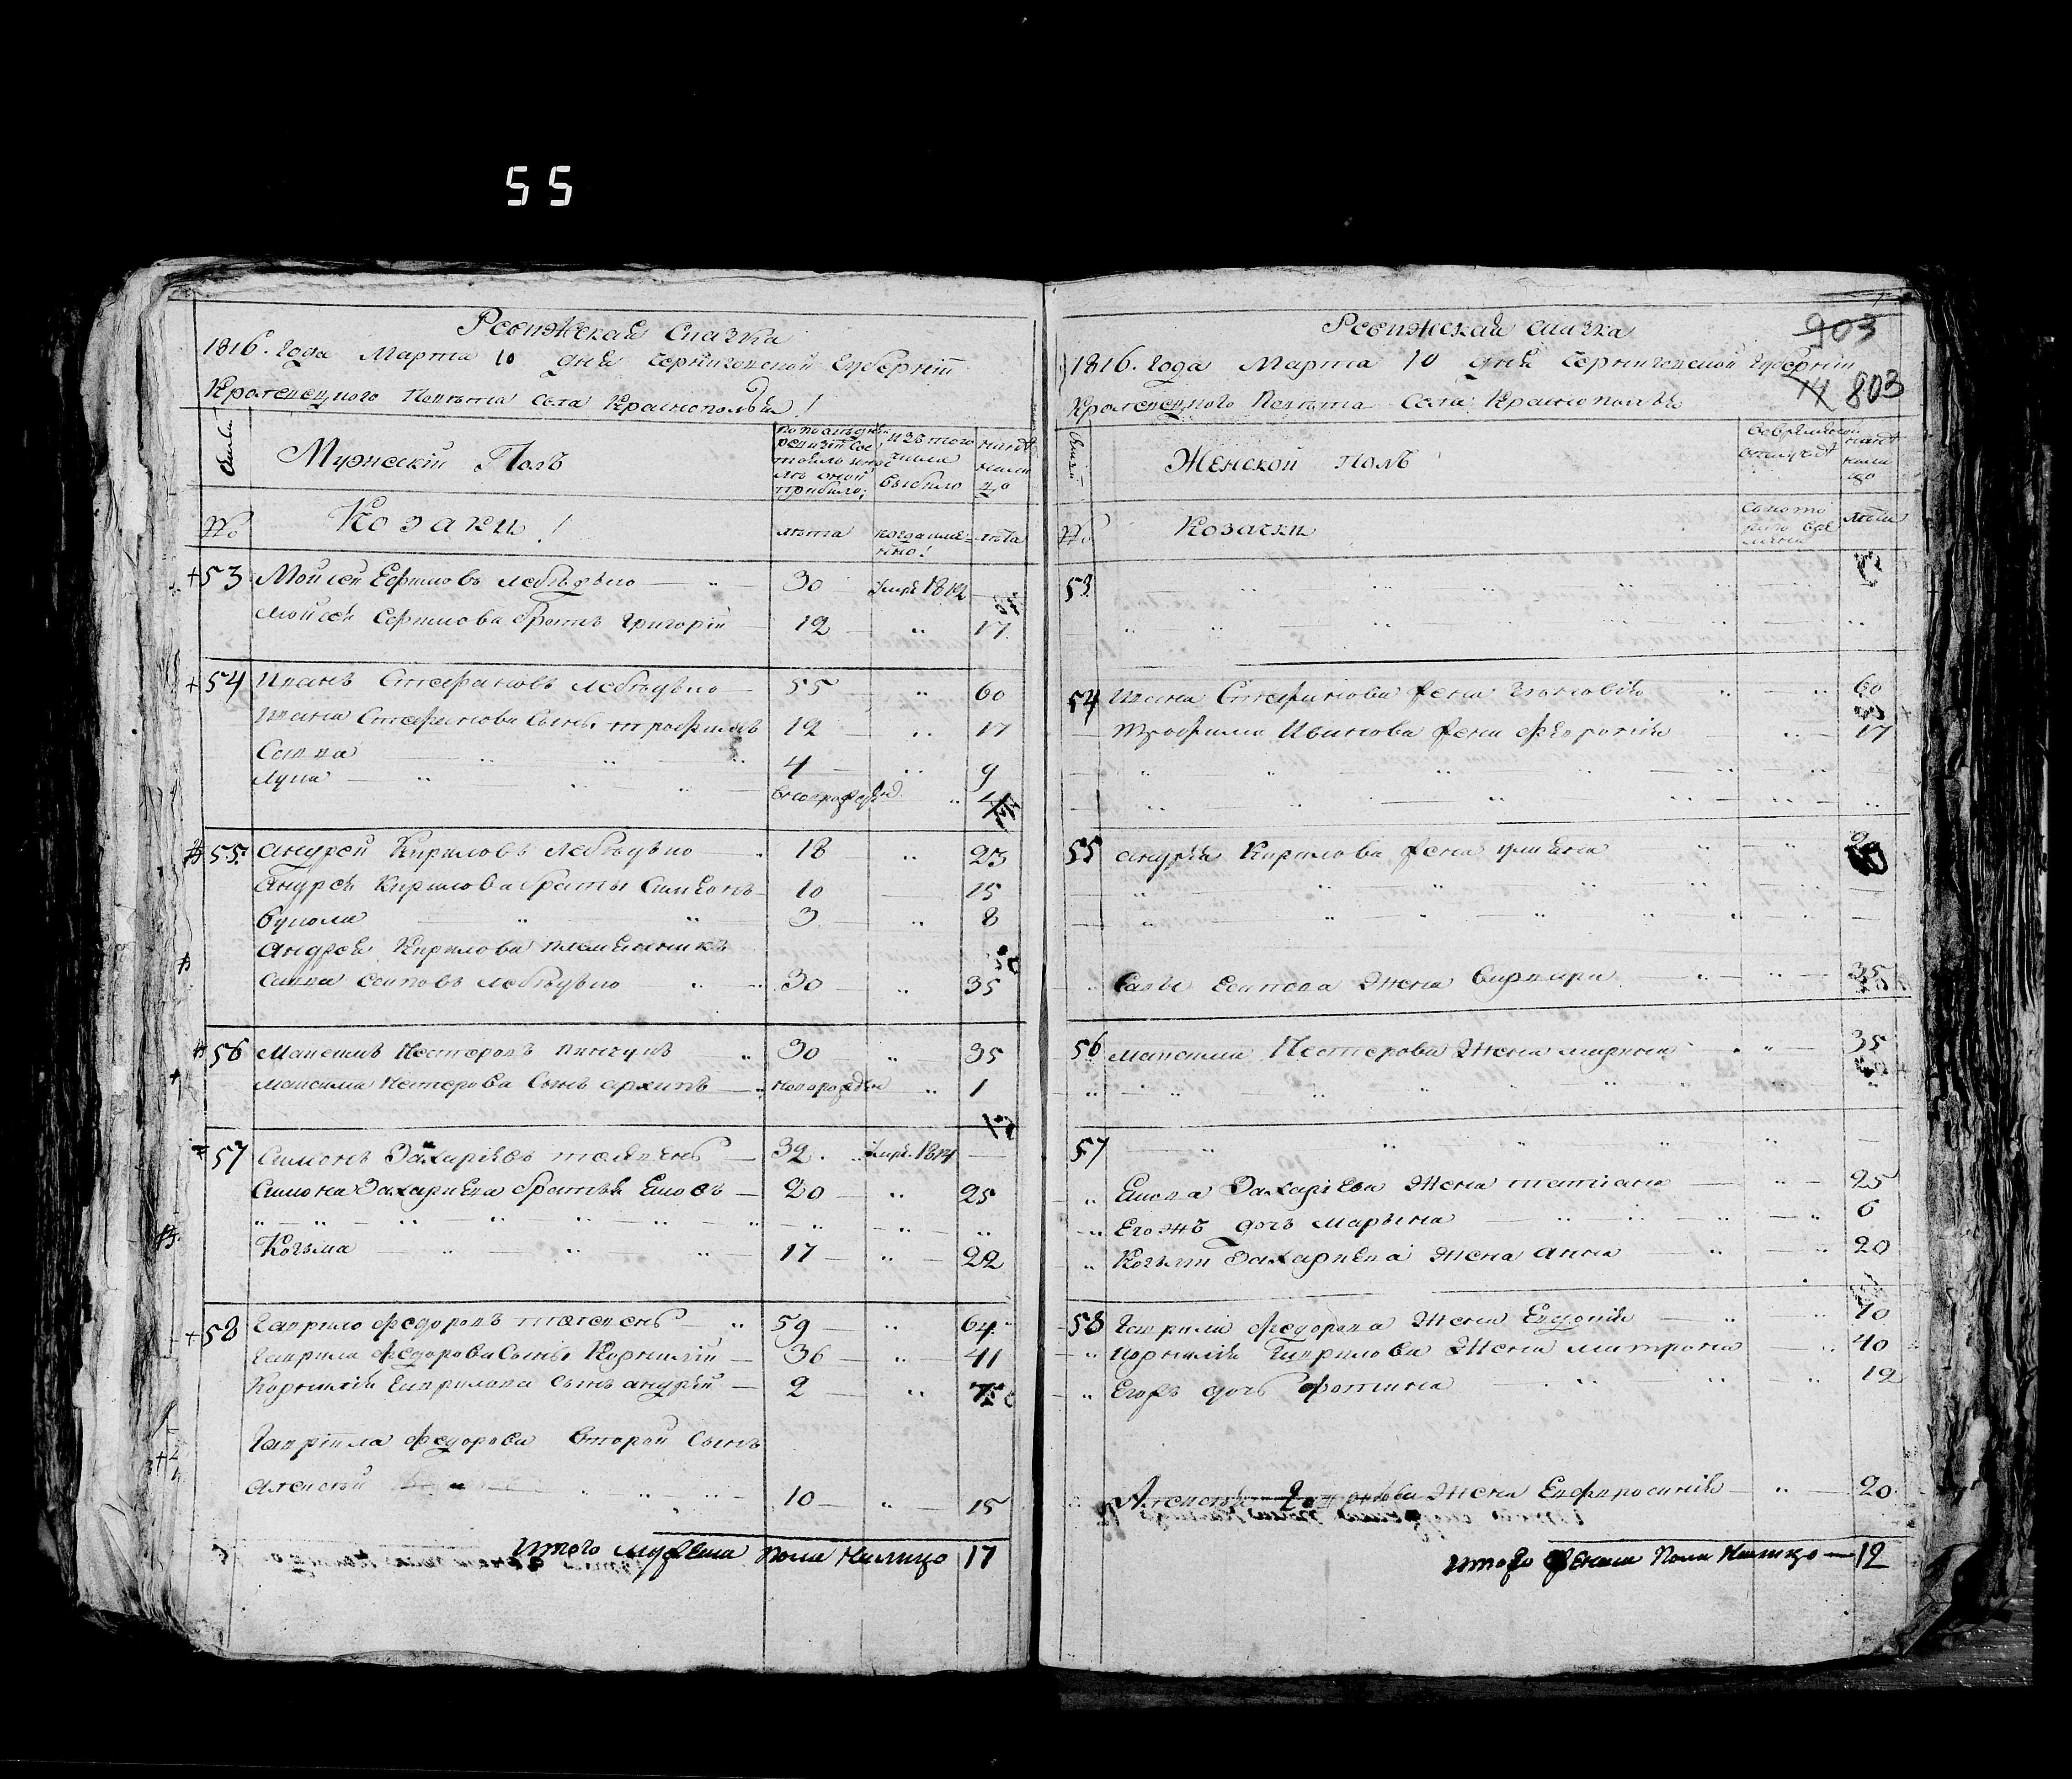 55
Ревижская Сказка
1816. Года Марта 10 дня Черниговской Губернiи
Кролевецкого Повѣта Села Краснополья!
Мужескiй Полъ
по послѣдней ревизiи состояло и после оной прибыло;
изъ того числа выбыло
нынѣ на лицо
№
Козаки!
лѣта
когда имянно!
лѣта
53 Моисей Ефимовъ Лебѣдько 30 умре 1812
Моисея Ефимова братъ Григорiй 12 17
54 Иванъ Стефановъ Лебѣдько 55 60
Ивана Стефанова Сынъ Трофимъ 12 17
Савва 4 9
Лука
55 Андрей Кириловъ Лебѣдько 18 23
Андрея Кирилова братья Симеонъ 10 15
3 8
Андрея Кирилова племянникъ
Савва Осиповъ Лебѣдько 30 35
56 Максимъ Нестеровъ 30 35
Максима Нестерова Сынъ Архипъ новорожден 1
57 Симонъ Захарiевъ 32 умре 1814
Симона Захарiева братья 20 25
Козьма 17 22
58 Гаврило Федоровъ 59 64
Гаврила Федорова Сынъ Корнилiй 36 41
Корнилiя Гаврилова Сынъ Андрей 2
Гаврiила Федорова второй Сынъ
Алексѣй 10 15
Итого мужеска пола налицо 17
Ревижская сказка
903
803
1816. Года Марта 10 дня Черниговской Губернiи
Кролевецкого Повѣта Села Краснополья
Женской полъ
во временной отлучкѣ
нынѣ на лицо
№
Козачки
съ какого времяни
лѣта
53
54 Ивана Стефанова жена 60
Трофима Иванова жена Феврония 17
55 Андрея Кирилова жена Улияна
Савы Осипова Жена Варвара 35
56 Максима Нестерова Жена Марина 35
57
Захарiева Жена Татiана 25
Егожъ дочь Марьяна 6
Козьмы Захарiева Жена Анна 20
58 Гаврила Федорова Жена Евдокiя
Корнилiя Гаврилова Жена Матрона 40
Егожъ дочь Фотина 12
Алексѣя Гаврилова Жена Ефросинiя 20
Итого женска пола налицо 12